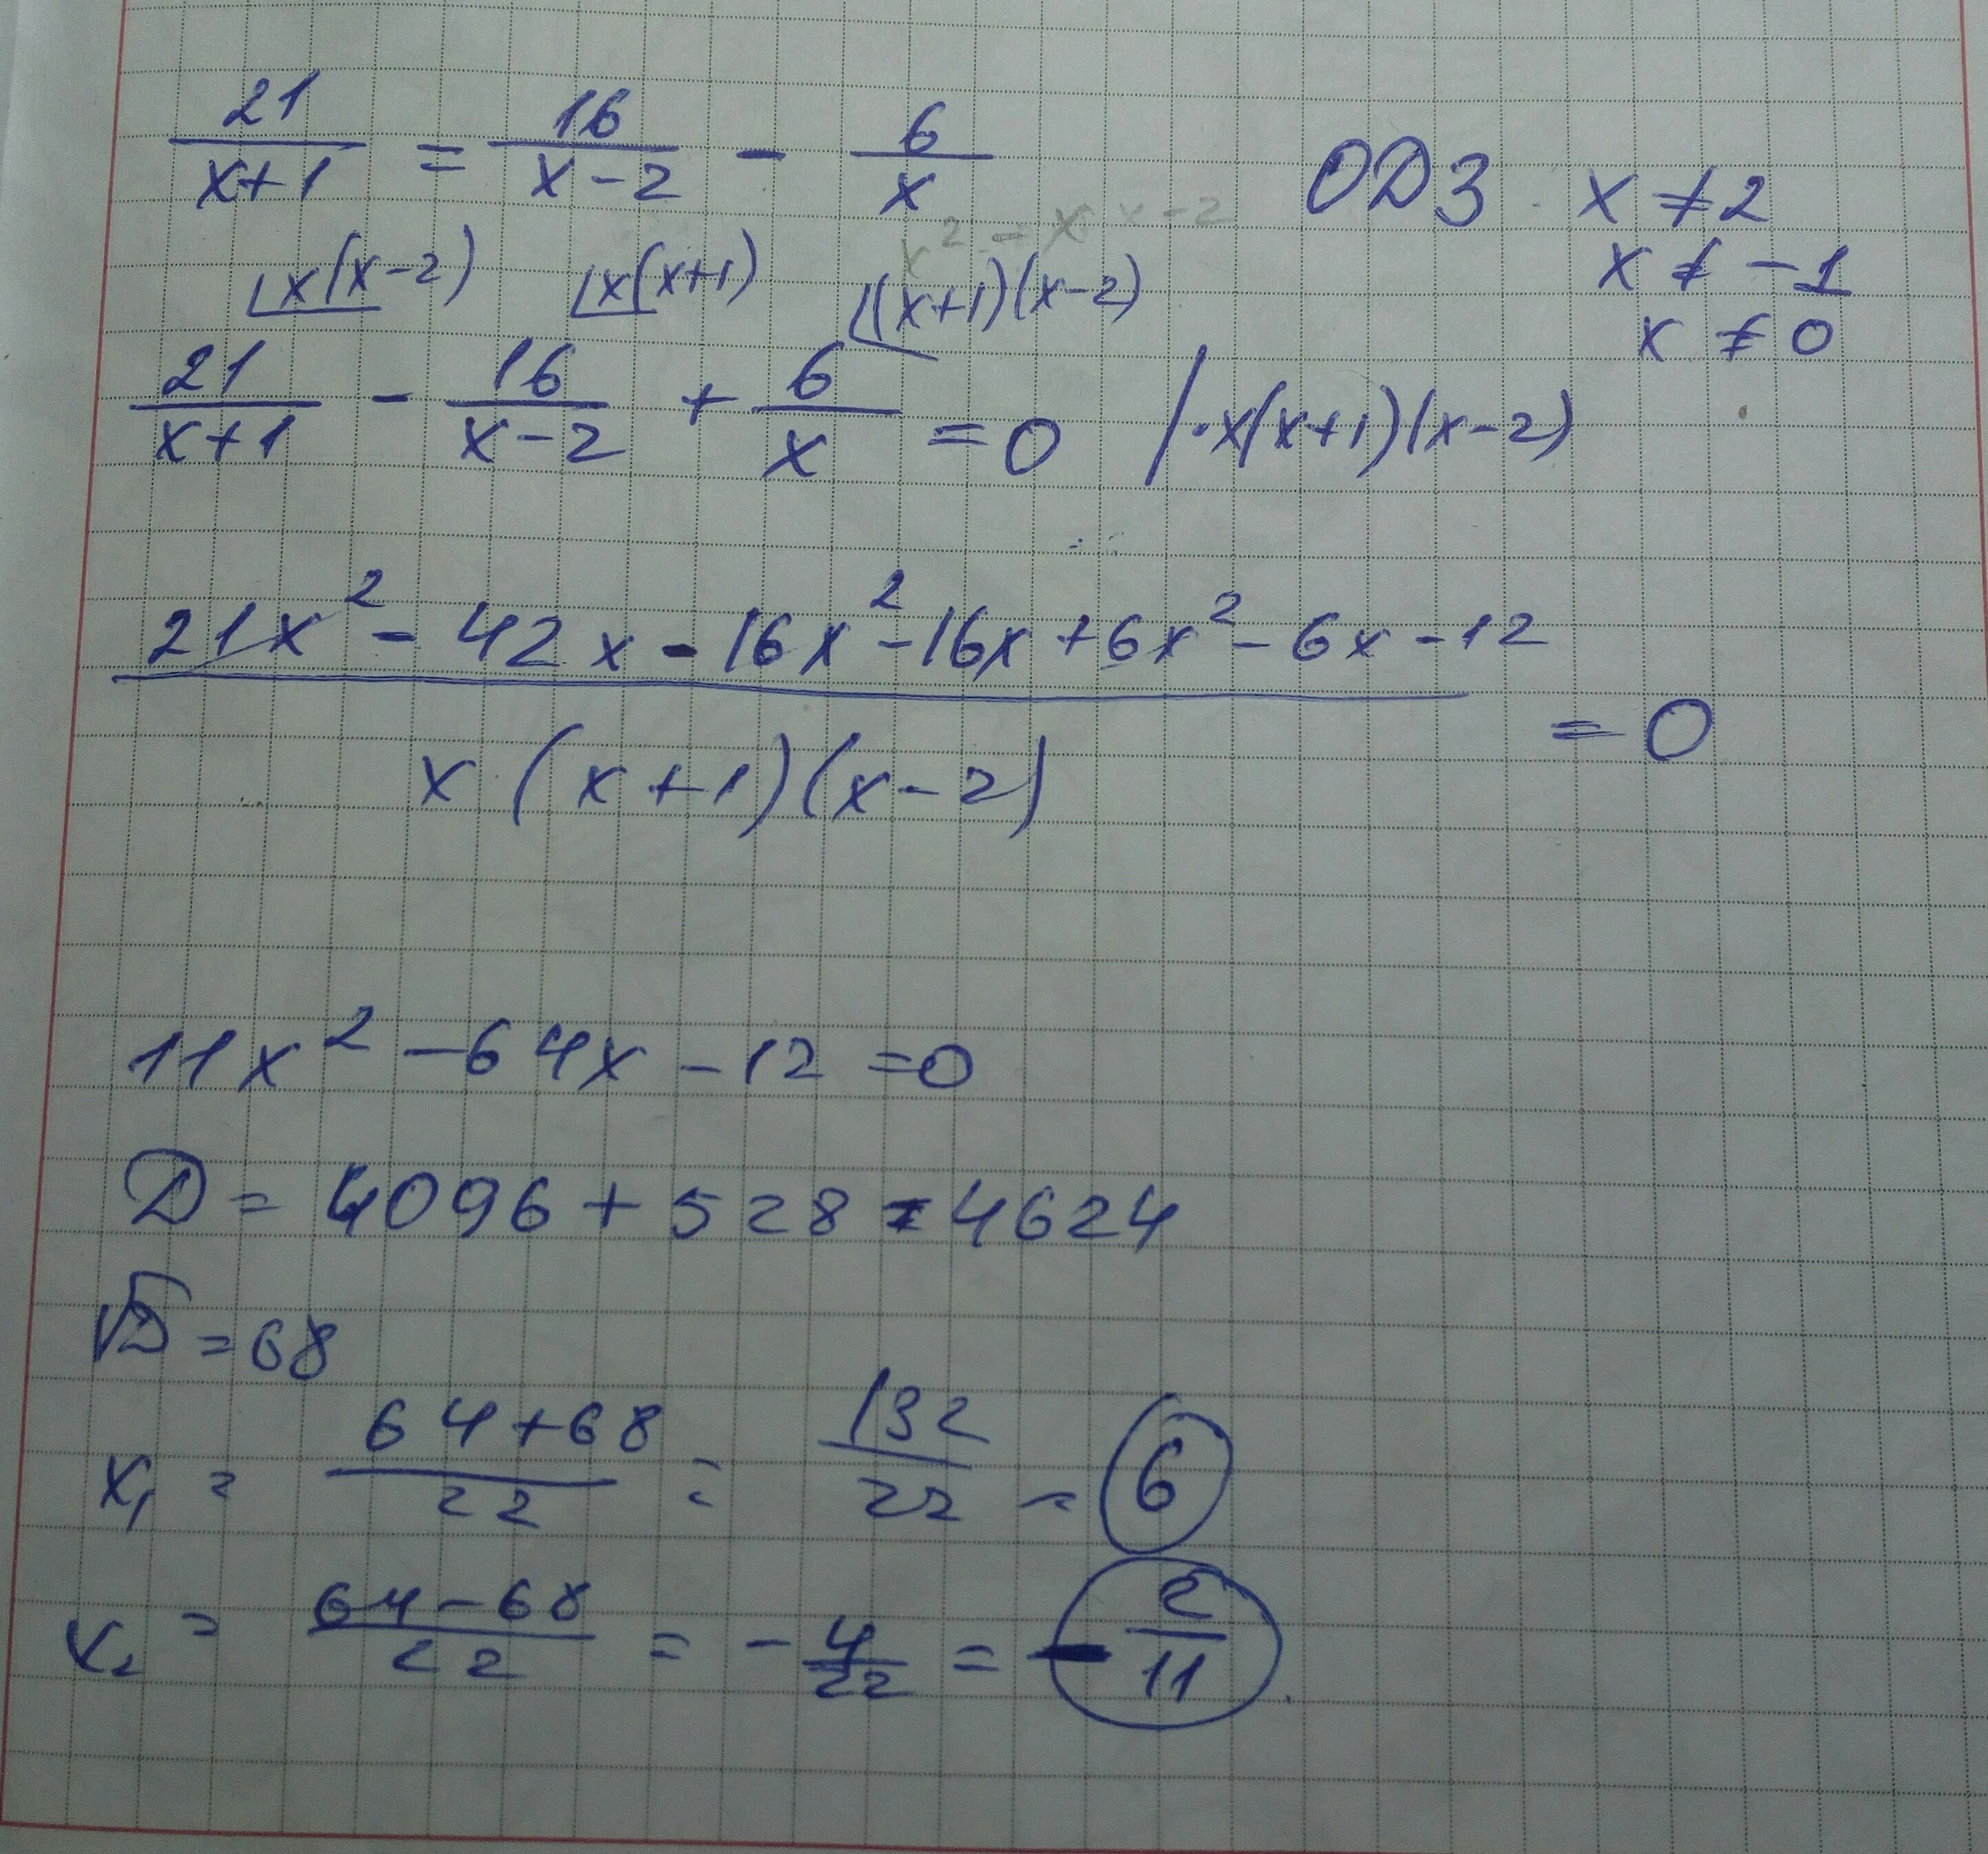 21/(x+1) = 16/(x-2) - 6/x ОДЗ x ≠ 2
x ≠ -1
x ≠ 0
x² - x x-2
x(x-2) x(x+1) (x+1)(x-2)
21/(x+1) - 16/(x-2) + 6/x = 0 /·x(x+1)(x-2)
(21x² - 42x - 16x² - 16x + 6x² - 6x - 12)/(x(x+1)(x-2)) = 0
11x² - 64x - 12 = 0
Д = 4096 + 528 = 4624
√Д = 68
x₁ = (64+68)/22 = 132/22 = 6
x₂ = (64-68)/22 = -4/22 = -2/11